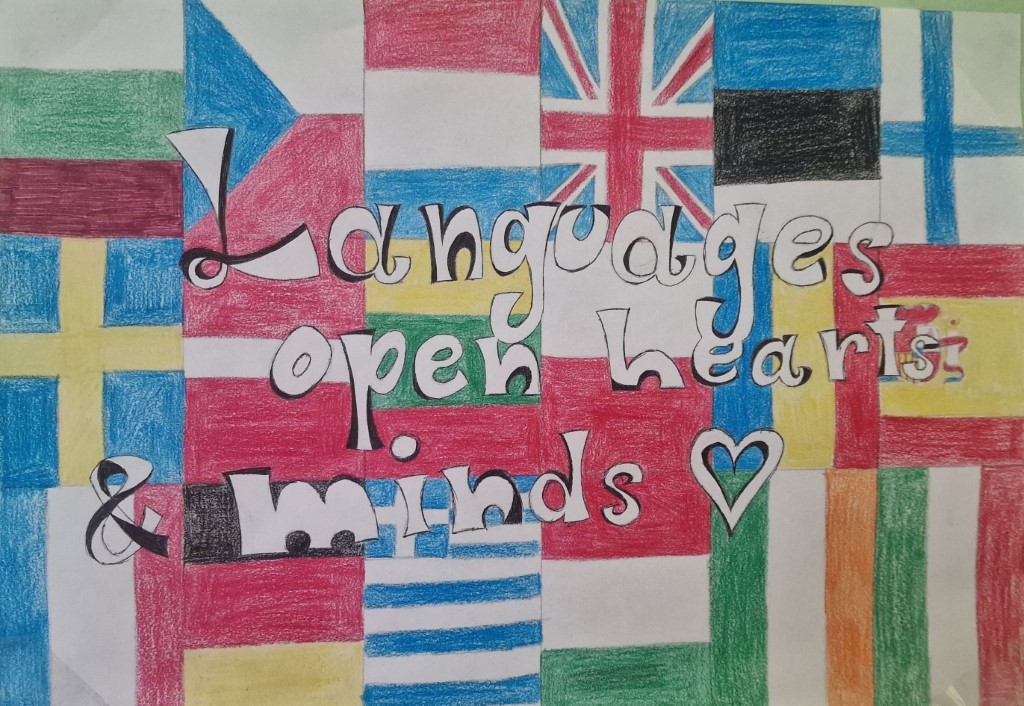 Languages
open hearts
& minds